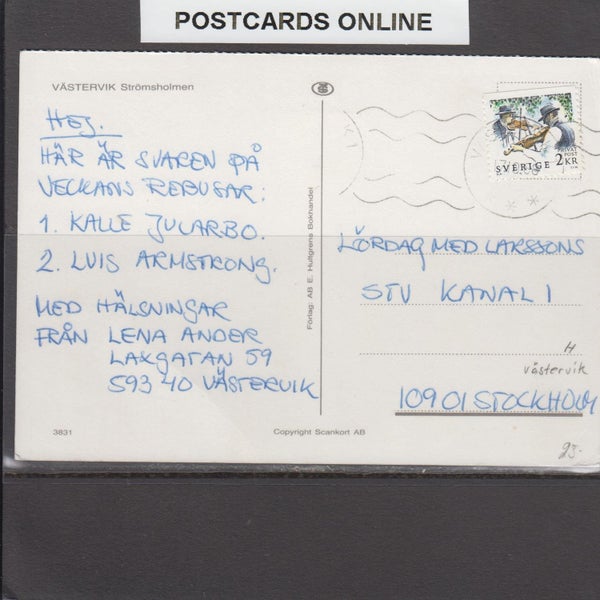 POSTCARDS ONLINE
VÄSTERVIK Strömsholmen
HEJ.
HÄR ÄR SVAREN PÅ
VECKANS REBUSAR:
1. KALLE JULARBO.
2. LUIS ARMSTRONG.
MED HÄLSNINGAR
FRÅN LENA ANDER
LAXGATAN 59
593 40 VÄSTERVIK
3831
Copyright Scankort AB
Förlag: AB E. Hultgrens Bokhandel
SVERIGE 2 KR
LÖRDAG MED LARSSONS
STV KANAL 1
H
Västervik
109 01 STOCKHOLM
25:-